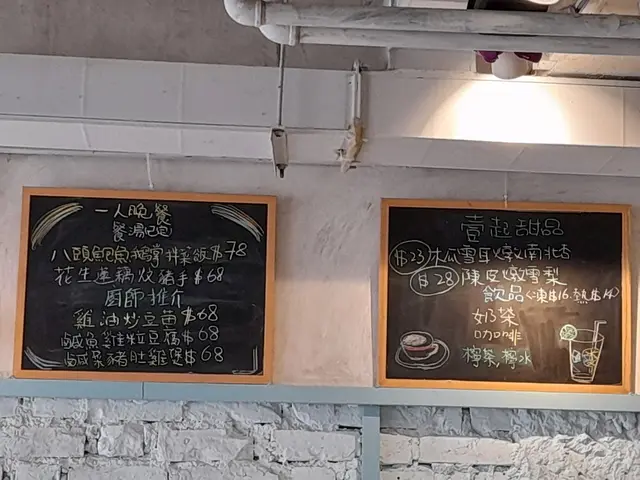 一人晚餐
餐湯包
八頭鮑魚鵝掌拌菜飯$78
花生蓮藕炆豬手$68
厨師推介
雞油炒豆苗$68
鹹魚雞粒豆腐$68
鹹菜豬肚雞煲$68
壹起甜品
$23木瓜雪耳燉南北杏
$28陳皮燉雪梨
飲品(凍$16.熱$14)
奶茶
咖啡
檸茶,檸水